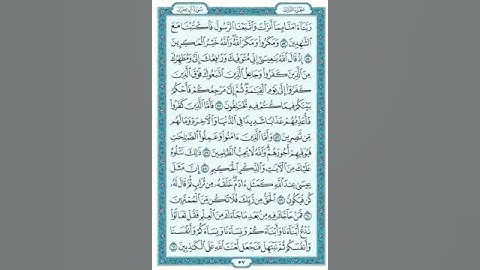 الجزء الثالث سورة آل عمران
رَبَّنَآ ءَامَنَّا بِمَآ أَنزَلْتَ وَٱتَّبَعْنَا ٱلرَّسُولَ فَٱكْتُبْنَا مَعَ
ٱلشَّٰهِدِينَ ٥٣ وَمَكَرُوا۟ وَمَكَرَ ٱللَّهُ وَٱللَّهُ خَيْرُ ٱلْمَٰكِرِينَ
٥٤ إِذْ قَالَ ٱللَّهُ يَٰعِيسَىٰٓ إِنِّى مُتَوَفِّيكَ وَرَافِعُكَ إِلَىَّ وَمُطَهِّرُكَ
مِنَ ٱلَّذِينَ كَفَرُوا۟ وَجَاعِلُ ٱلَّذِينَ ٱتَّبَعُوكَ فَوْقَ ٱلَّذِينَ
كَفَرُوٓا۟ إِلَىٰ يَوْمِ ٱلْقِيَٰمَةِ ثُمَّ إِلَىَّ مَرْجِعُكُمْ فَأَحْكُمُ
بَيْنَكُمْ فِيمَا كُنتُمْ فِيهِ تَخْتَلِفُونَ ٥٥ فَأَمَّا ٱلَّذِينَ كَفَرُوا۟
فَأُعَذِّبُهُمْ عَذَابًا شَدِيدًا فِى ٱلدُّنْيَا وَٱلْءَاخِرَةِ وَمَا لَهُم
مِّن نَّٰصِرِينَ ٥٦ وَأَمَّا ٱلَّذِينَ ءَامَنُوا۟ وَعَمِلُوا۟ ٱلصَّٰلِحَٰتِ
فَيُوَفِّيهِمْ أُجُورَهُمْ وَٱللَّهُ لَا يُحِبُّ ٱلظَّٰلِمِينَ ٥٧ ذَٰلِكَ نَتْلُوهُ
عَلَيْكَ مِنَ ٱلْءَايَٰتِ وَٱلذِّكْرِ ٱلْحَكِيمِ ٥٨ إِنَّ مَثَلَ
عِيسَىٰ عِندَ ٱللَّهِ كَمَثَلِ ءَادَمَ خَلَقَهُۥ مِن تُرَابٍ ثُمَّ قَالَ لَهُۥ
كُن فَيَكُونُ ٥٩ ٱلْحَقُّ مِن رَّبِّكَ فَلَا تَكُن مِّنَ ٱلْمُمْتَرِينَ
٦٠ فَمَنْ حَآجَّكَ فِيهِ مِنۢ بَعْدِ مَا جَآءَكَ مِنَ ٱلْعِلْمِ فَقُلْ تَعَالَوْا۟
نَدْعُ أَبْنَآءَنَا وَأَبْنَآءَكُمْ وَنِسَآءَنَا وَنِسَآءَكُمْ وَأَنفُسَنَا
وَأَنفُسَكُمْ ثُمَّ نَبْتَهِلْ فَنَجْعَل لَّعْنَتَ ٱللَّهِ عَلَى ٱلْكَٰذِبِينَ ٦١
٥٧